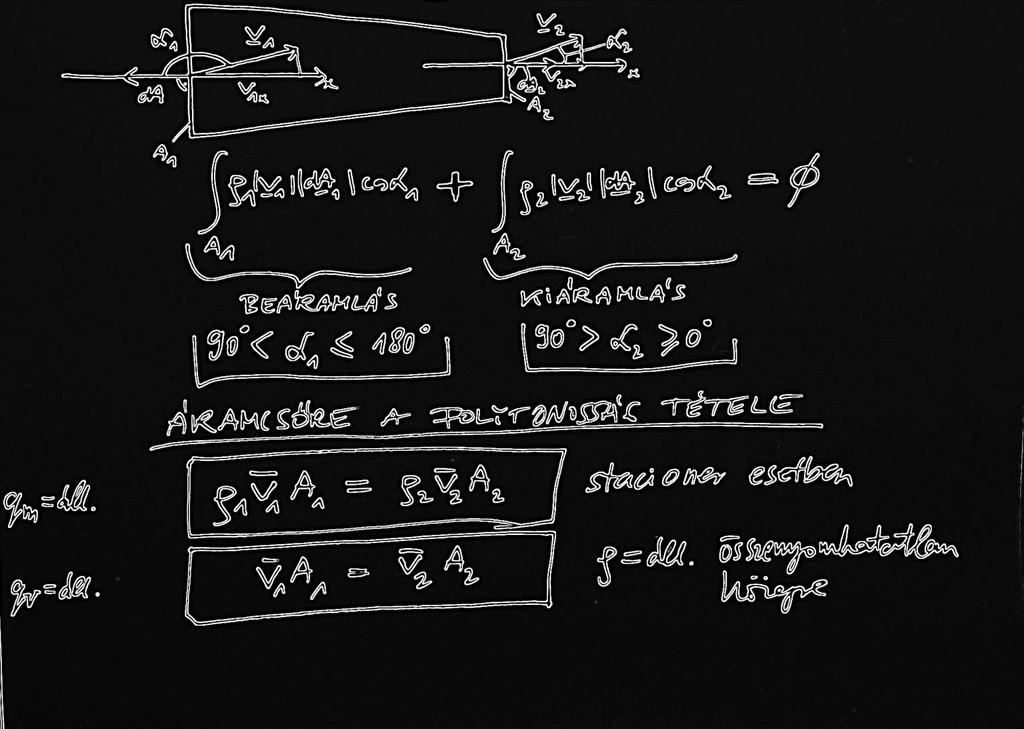 α₁ v₁ v₂ α₂
dA v₁ₓ x dA₂ v₂ₓ x
A₁ A₂
∫ ρ₁|v₁||dA₁|cosα₁ + ∫ ρ₂|v₂||dA₂|cosα₂ = ϕ
A₁ A₂
BEÁRAMLÁS KIÁRAMLÁS
90° < α₁ ≤ 180° 90° > α₂ ≥ 0°
ÁRAMCSŐRE A TÉTELE
qₘ = áll. ρ₁ v̄₁ A₁ = ρ₂ v̄₂ A₂ stacioner esetben
qᵥ = áll. v̄₁ A₁ = v̄₂ A₂ ρ = áll. összenyomhatatlan
közegre